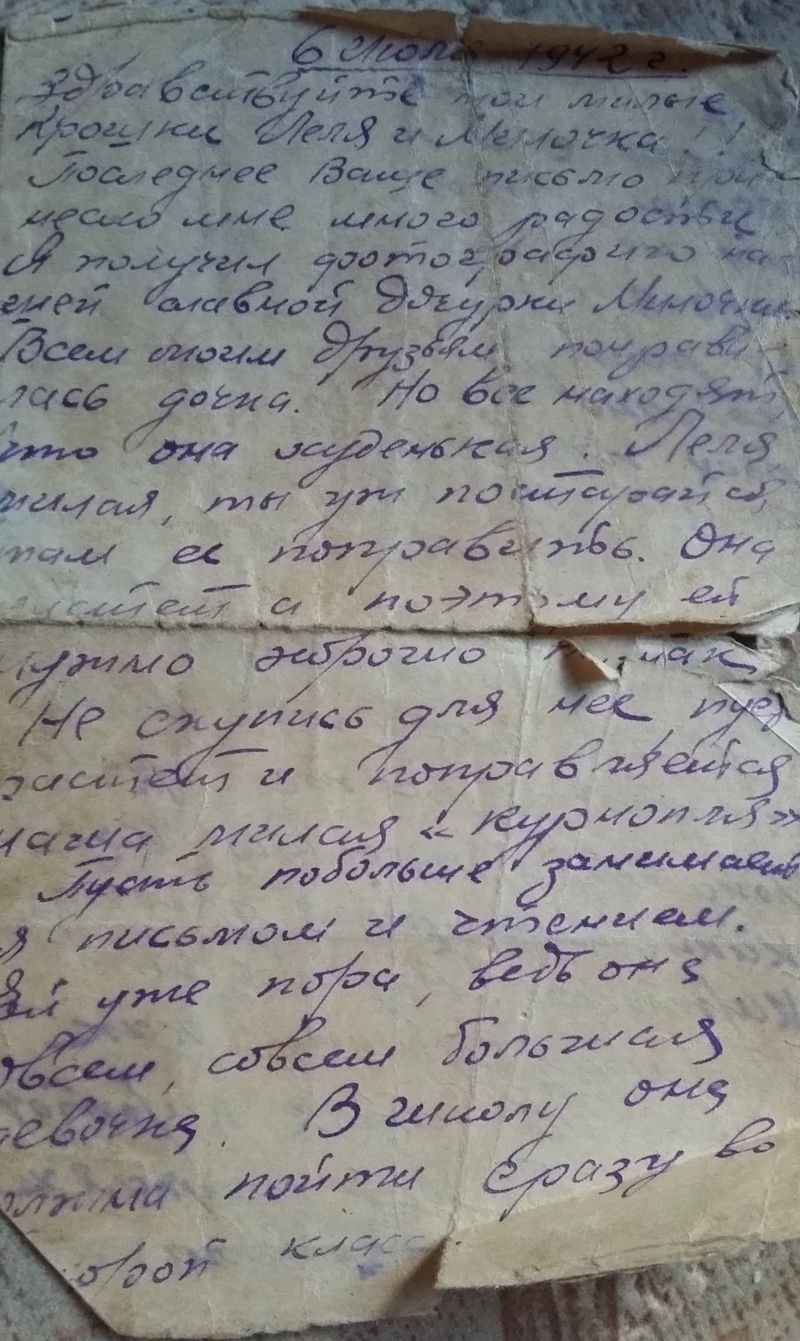 6 июля 1942 г.
Здравствуйте мои милые
крошки Леля и Милочка!!
Последнее Ваше письмо при
несло мне много радости
Я получил фотографию на
шей славной дочурки Милочки
Всем моим друзьям понрави-
лась дочка. Но все находят,
что она худенькая. Леля,
милая, ты уж постарайся
там ее поправить. Она
растет а поэтому ей
нужно
Не скупись для нее, пусть
растет и поправляется
наша милая «курнопля»
Пусть побольше занимает
ся письмом и чтением.
Ей уже пора, ведь она
совсем, совсем большая
девочка. В школу она
должна пойти сразу во
второй класс.